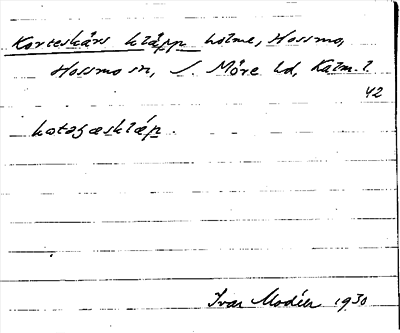 Korteskärs kläpp holme, Hossmo,
Hossmo sn, S. Möre hd, Kalm. l.
42
kotəʒæsklæp.
Ivar Modéer 1930